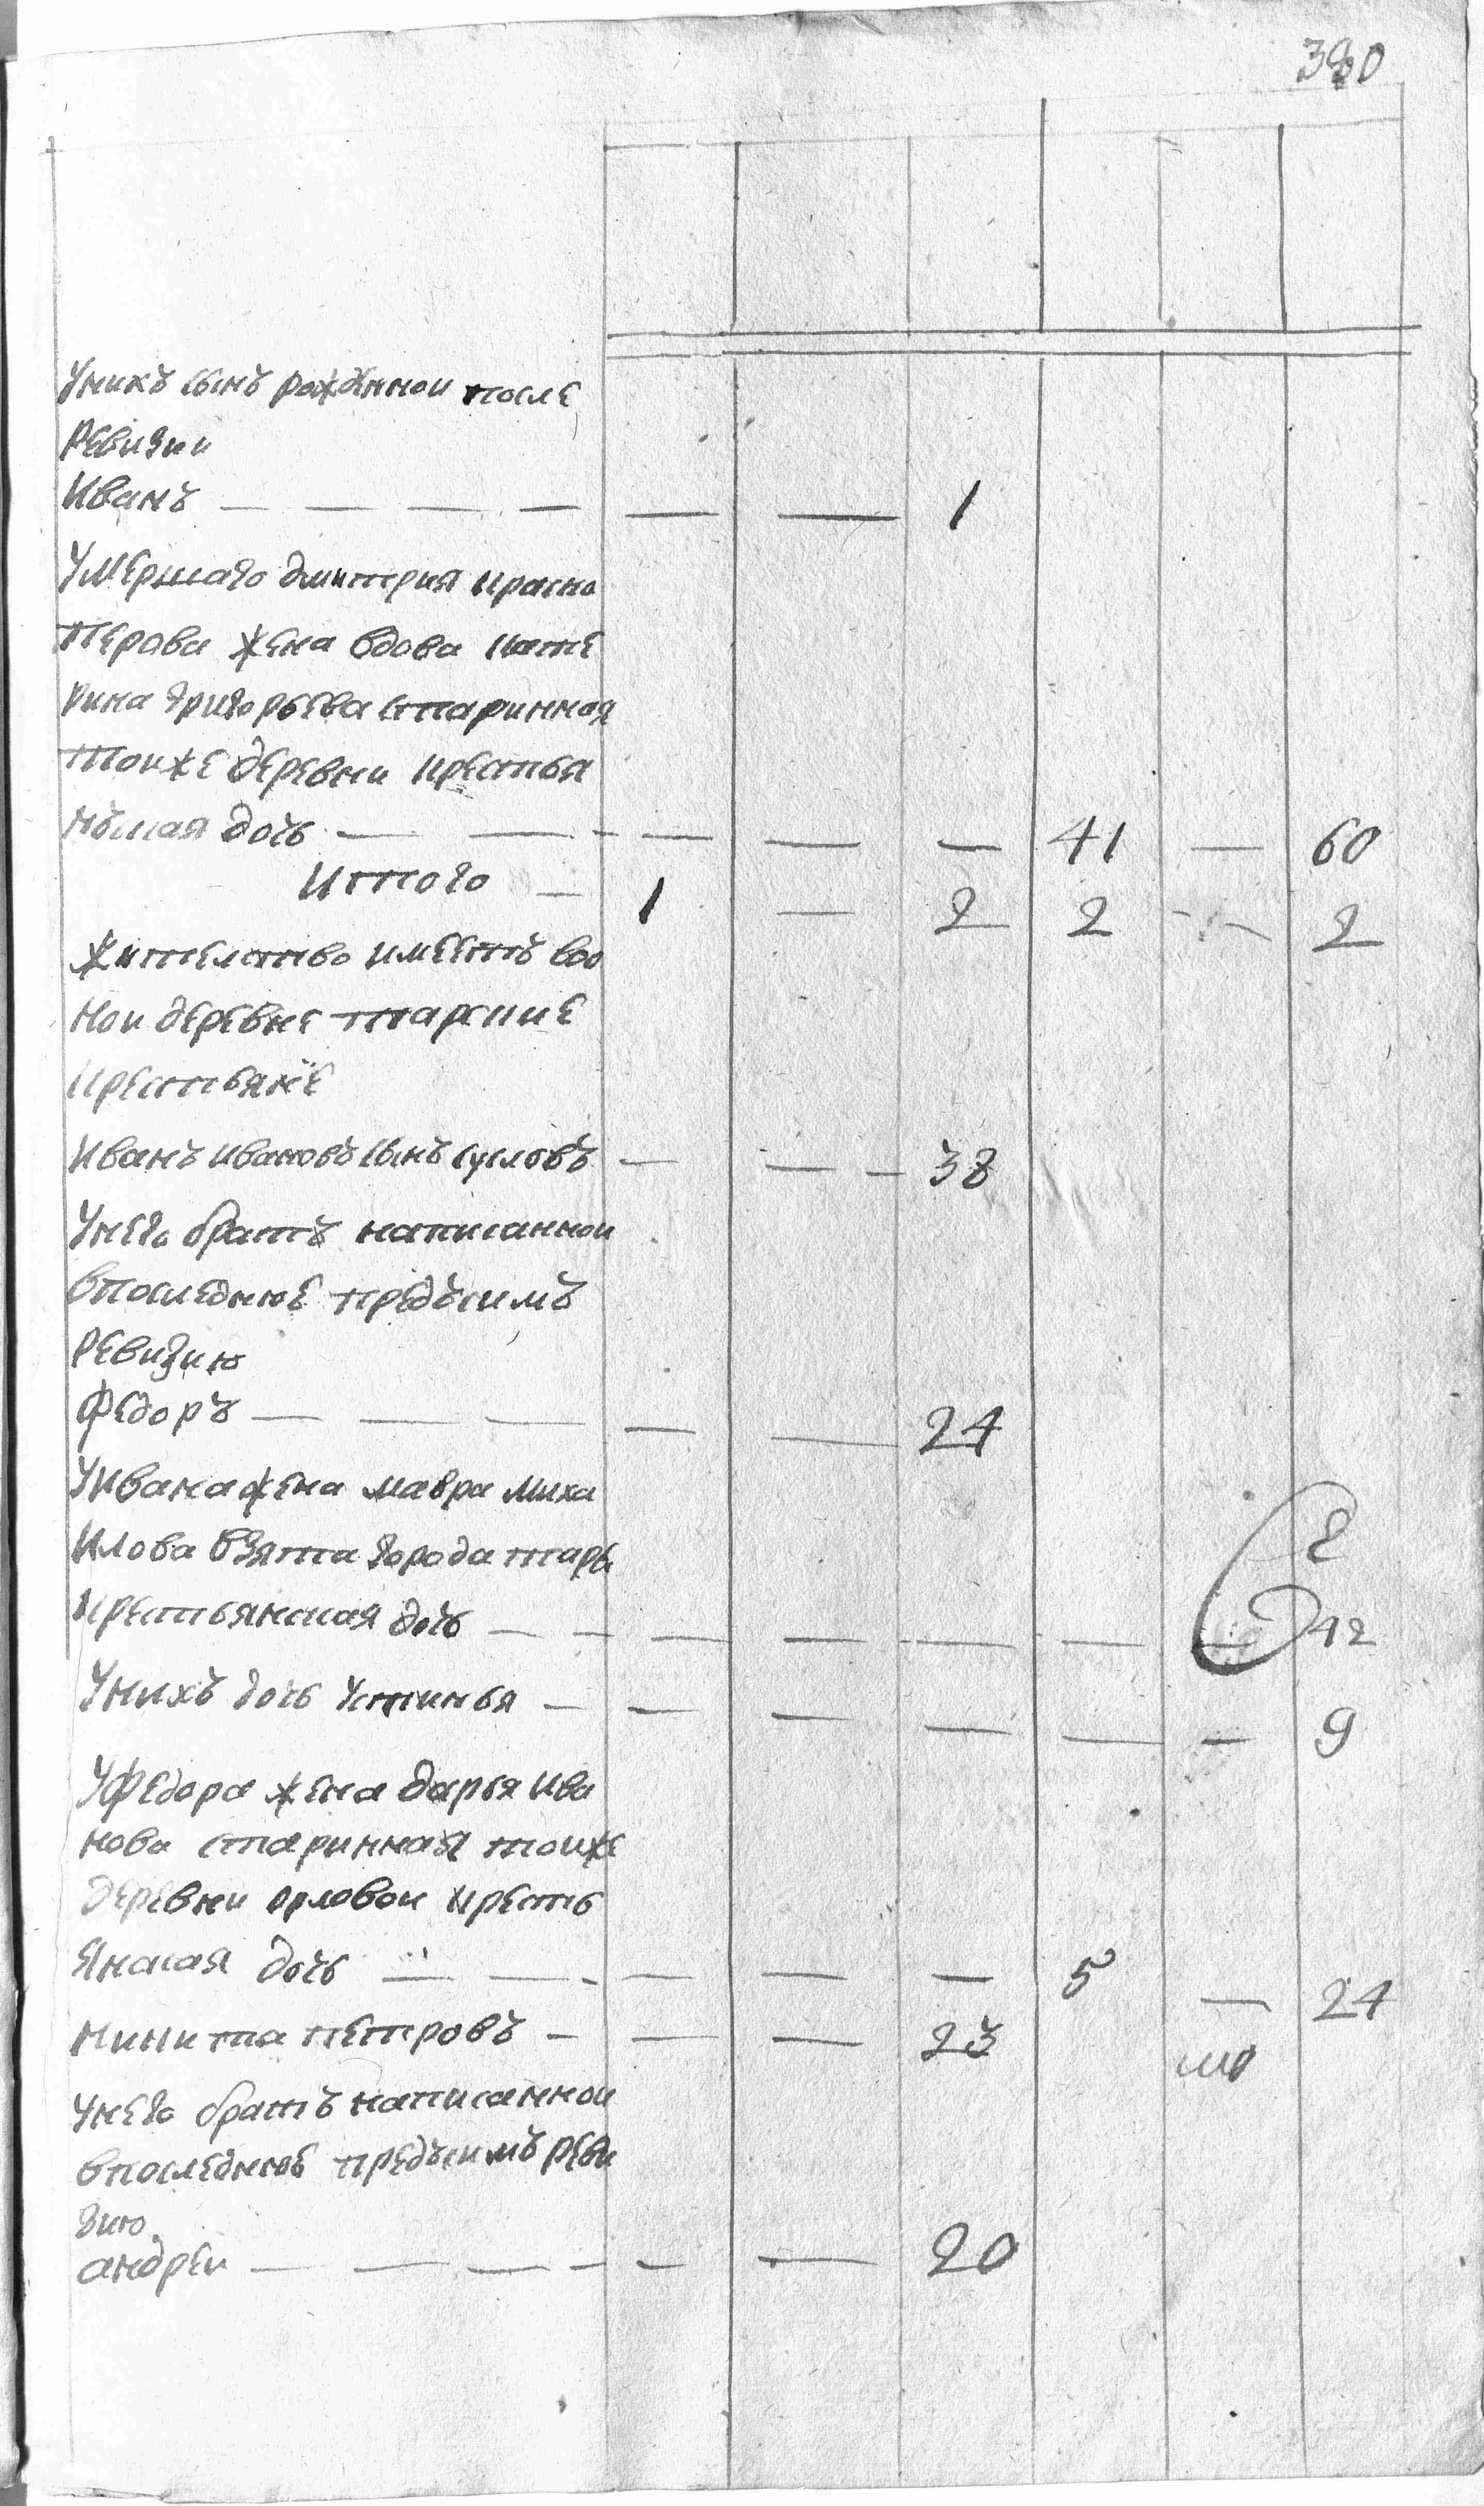 380
Унихъ сынъ рожденнои после
ревизии
Иванъ — — — — — — 1
Умершаго дмитрия красно
перова жена вдова кате
рина григорьева старинная
тоиже деревни крестья
нъская дочь — — — — — — 41 — 60
Итого — 1 — 2 2 — 2
жителство имеетъ во
нои деревне тарские
крестьяне
Иванъ ивановъ сынъ сусловъ — — — 38
Унего братъ написаннои
впоследнюе предъсимъ
ревизию
Федоръ — — — — — 24
Уивана жена мавра миха
илова взята города тары 2
крестьянская дочь — — — — — — — 42
Унихъ дочь Устинья — — — — — — 9
Уфедора жена дарья ива
нова старинная тоиже
деревни орловои кресть
янская дочь — — — — — — 5 — 24
никита петровъ — — — 23
Унего братъ написаннои
впоследнюе предъсимъ реви
зию
андреи — — — — — — 20